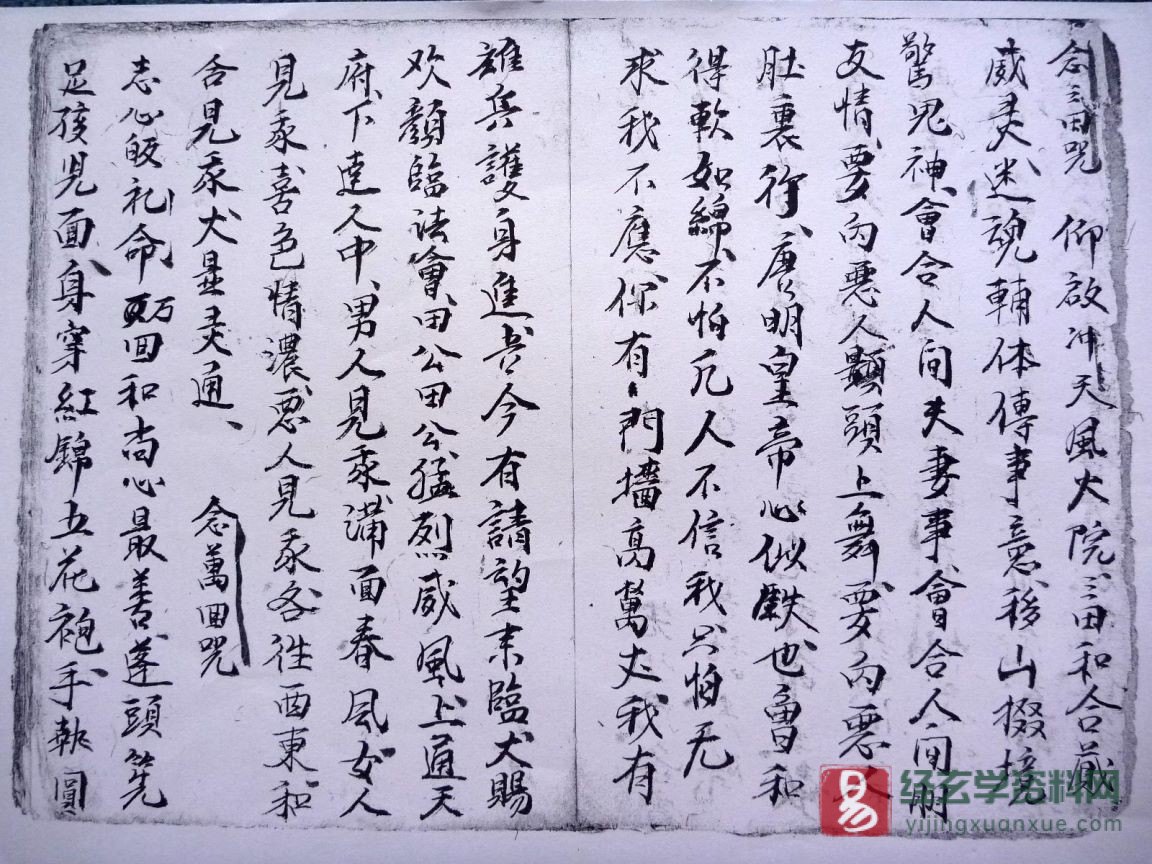 念三田咒　仰啟冲天風火院、三田和合藏
威灵迷魂輔体傳事意移山掇境
驚鬼神、會合人間夫妻事、會合人间朋
友情、要内悪人顛頭上舞要内悪人
肚裏行、唐明皇帝心似鉄也會和
得軟如綿、不怕凡人不信我只怕无
求我不應你有、門墻高萬丈我有
雄兵護身進吾今有請望来臨大賜
欢顏臨法會、田公田公猛烈威風上通天
府、下達人中、男人見吾滿面春風女人
見吾喜色情濃悪人見吾各徃西東和
合見吾大显灵通、
念萬回咒
志心皈礼命、萬回和尚心最善蓬頭
足孩児面、身穿紅錦五花袍手執圓
经玄学资料网
易
yijingxuanxue.com